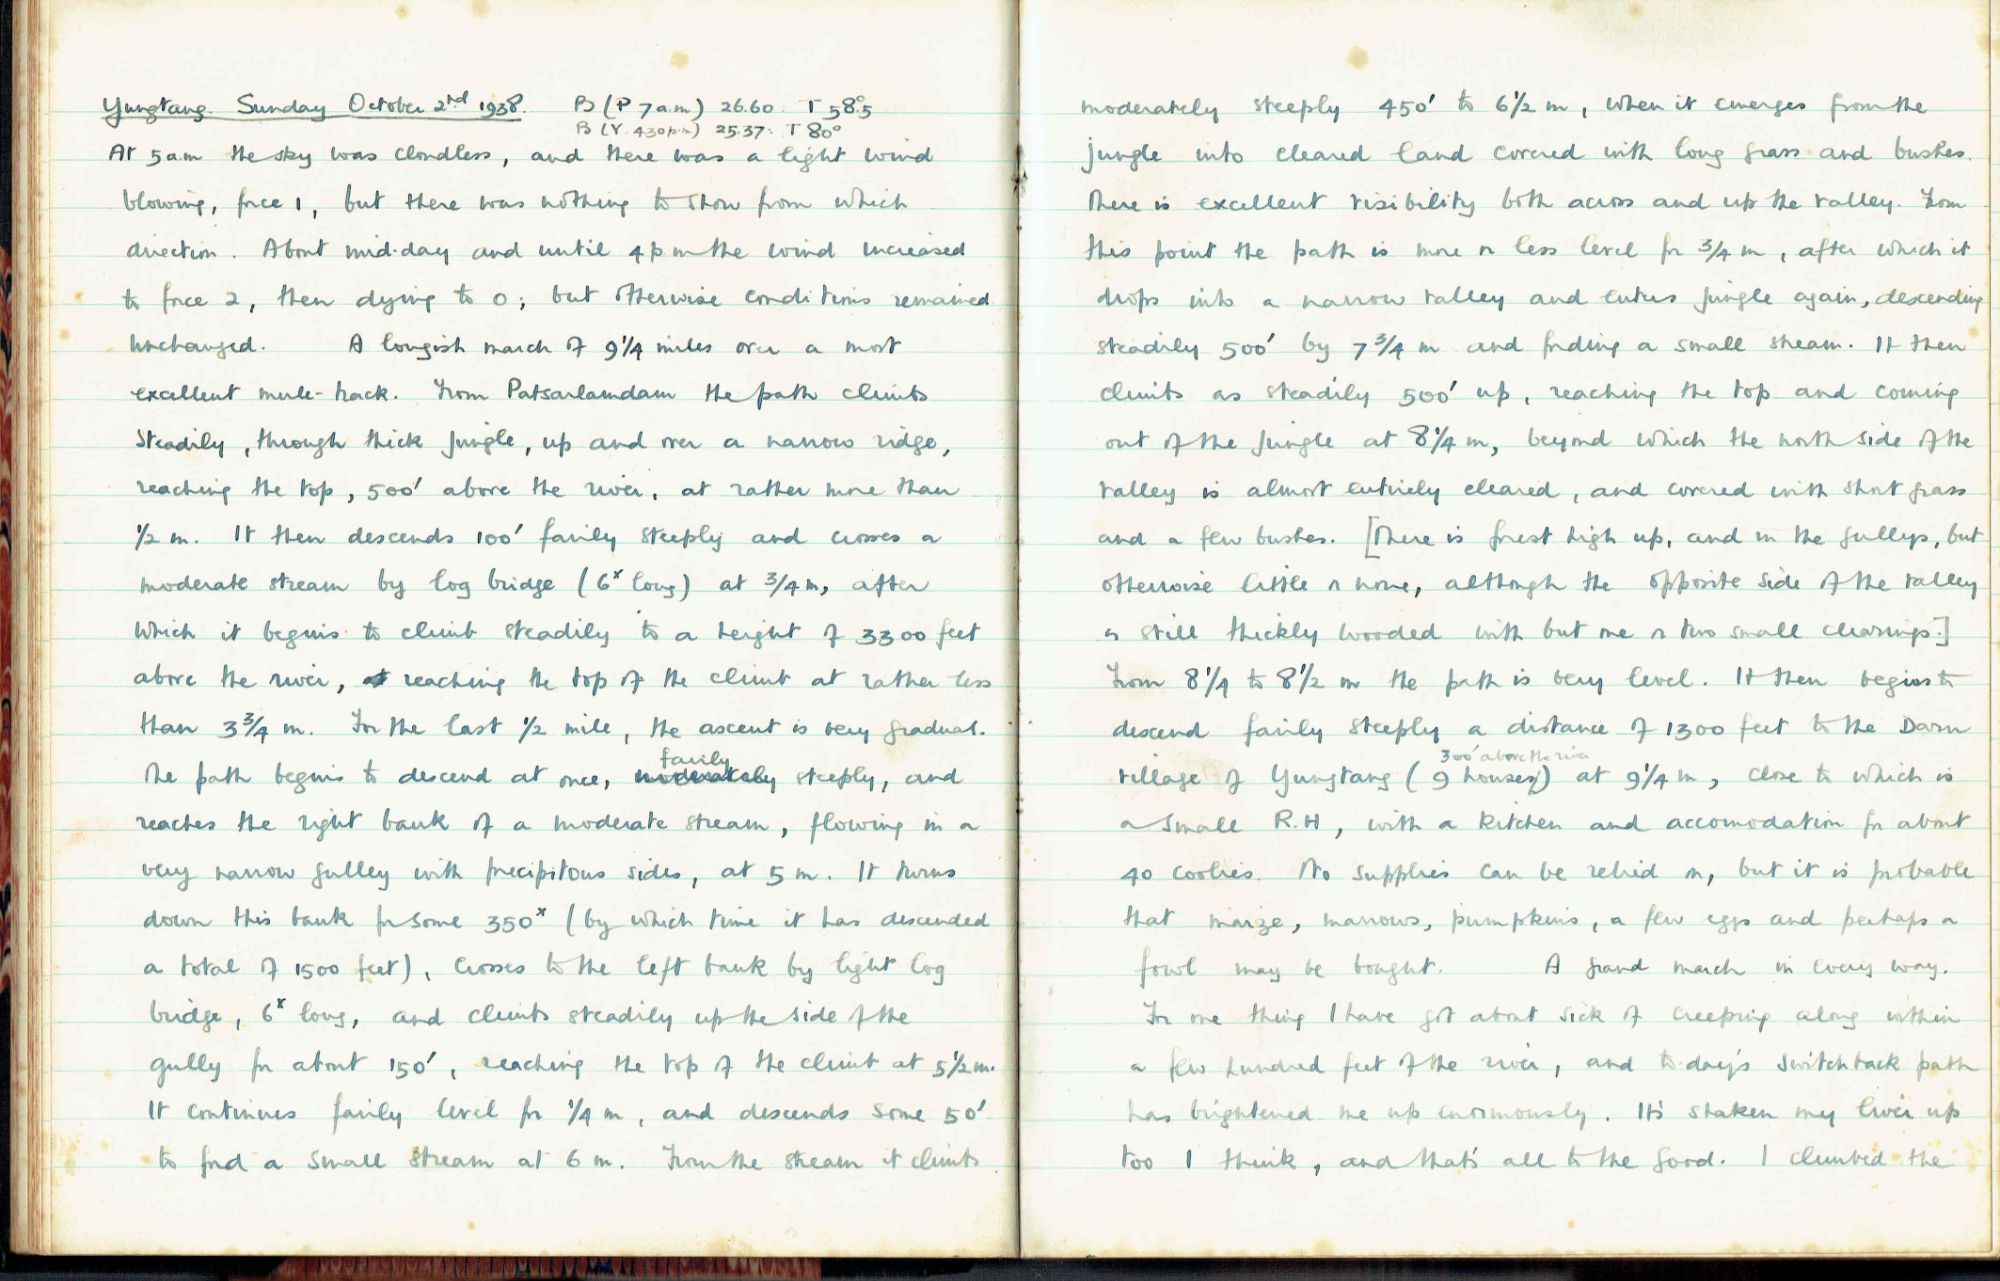 Yungtang. Sunday October 2nd 1938. B (P 7 a.m) 26.60 T 58.5°
B (Y. 4.30 p.m) 25.37. T 80°
At 5 a.m the sky was cloudless, and there was a light wind
blowing, force 1, but there was nothing to show from which
direction. About mid-day and until 4 p.m the wind increased
to force 2, then dying to 0; but otherwise conditions remained
unchanged. A longish march of 9¼ miles over a most
excellent mule-track. From Patsarlamdam the path climbs
steadily, through thick jungle, up and over a narrow ridge,
reaching the top, 500' above the river, at rather more than
½ m. It then descends 100' fairly steeply and crosses a
moderate stream by log bridge (6x long) at ¾ m, after
which it begins to climb steadily to a height of 3300 feet
above the river, reaching the top of the climb at rather less
than 3¾ m. For the last ½ mile, the ascent is very gradual.
fairly
The path begins to descend at once, moderately steeply, and
reaches the right bank of a moderate stream, flowing in a
very narrow gulley with precipitous sides, at 5 m. It turns
down this bank for some 350x (by which time it has descended
a total of 1500 feet), crosses to the left bank by light log
bridge, 6x long, and climbs steadily up the side of the
gully for about 150', reaching the top of the climb at 5½ m.
It continues fairly level for ¼ m, and descends some 50'
to ford a small stream at 6 m. From the stream it climbs
moderately steeply 450' to 6½ m, when it emerges from the
jungle into cleared land covered with long grass and bushes.
There is excellent visibility both across and up the valley. From
this point the path is more or less level for ¾ m, after which it
drops into a narrow valley and enters jungle again, descending
steadily 500' by 7¾ m and fording a small stream. It then
climbs as steadily 500' up, reaching the top and coming
out of the jungle at 8¼ m, beyond which the north side of the
valley is almost entirely cleared, and covered with short grass
and a few bushes. [There is forest high up, and in the gulleys, but
otherwise little or none, although the opposite side of the valley
is still thickly wooded with but one or two small clearings.]
From 8¼ to 8½ m the path is very level. It then begins to
descend fairly steeply a distance of 1300 feet to the Daru
300' above the river
village of Yungtang (9 houses) at 9¼ m, close to which is
a small R.H, with a kitchen and accomodation for about
40 coolies. No supplies can be relied on, but it is probable
that maize, marrows, pumpkins, a few eggs and perhaps a
fowl may be bought. A grand march in every way.
For one thing I have got about sick of creeping along within
a few hundred feet of the river, and to-day's switchback path
has brightened me up enormously. It's shaken my liver up
too I think, and that's all to the good. I climbed the